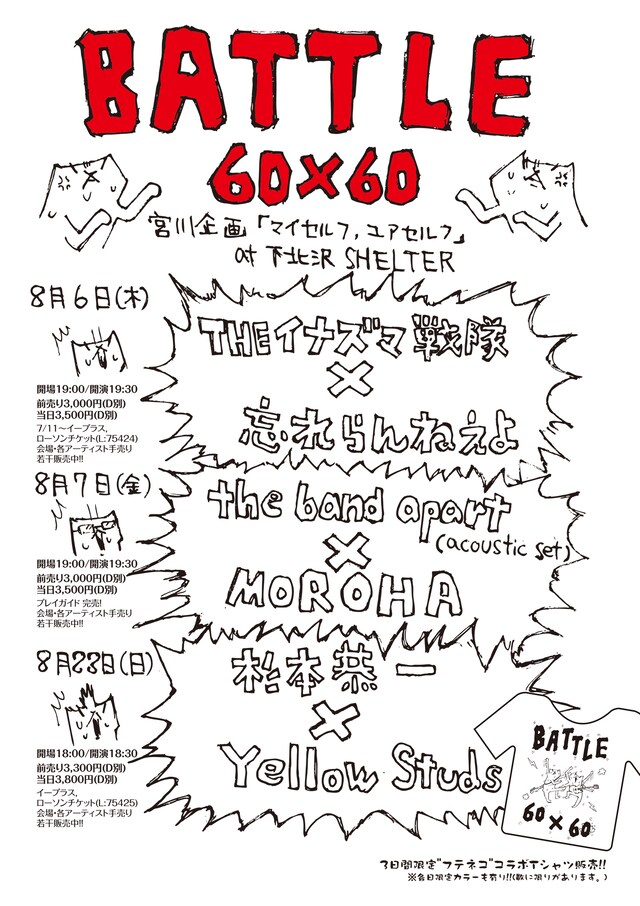 BATTLE
60×60
宮川企画「マイセルフ,ユアセルフ」
at 下北沢 SHELTER
8月6日(木)
開場19:00/開演19:30
前売り3,000円(D別)
当日3,500円(D別)
7/11〜イープラス,
ローソンチケット(L:75424)
会場・各アーティスト手売り
若干販売中!!
THEイナズマ戦隊
×
忘れらんねえよ
8月7日(金)
開場19:00/開演19:30
前売り3,000円(D別)
当日3,500円(D別)
プレイガイド 完売!
会場・各アーティスト手売り
若干販売中!!
the band apart
(acoustic set)
×
MOROHA
8月23日(日)
開場18:00/開演18:30
前売り3,300円(D別)
当日3,800円(D別)
イープラス,
ローソンチケット(L:75425)
会場・各アーティスト手売り
若干販売中!!
杉本恭一
×
Yellow Studs
BATTLE
60×60
3日間限定"フテネコ"コラボTシャツ販売!!
※各日限定カラーも有り!!(数に限りがあります。)